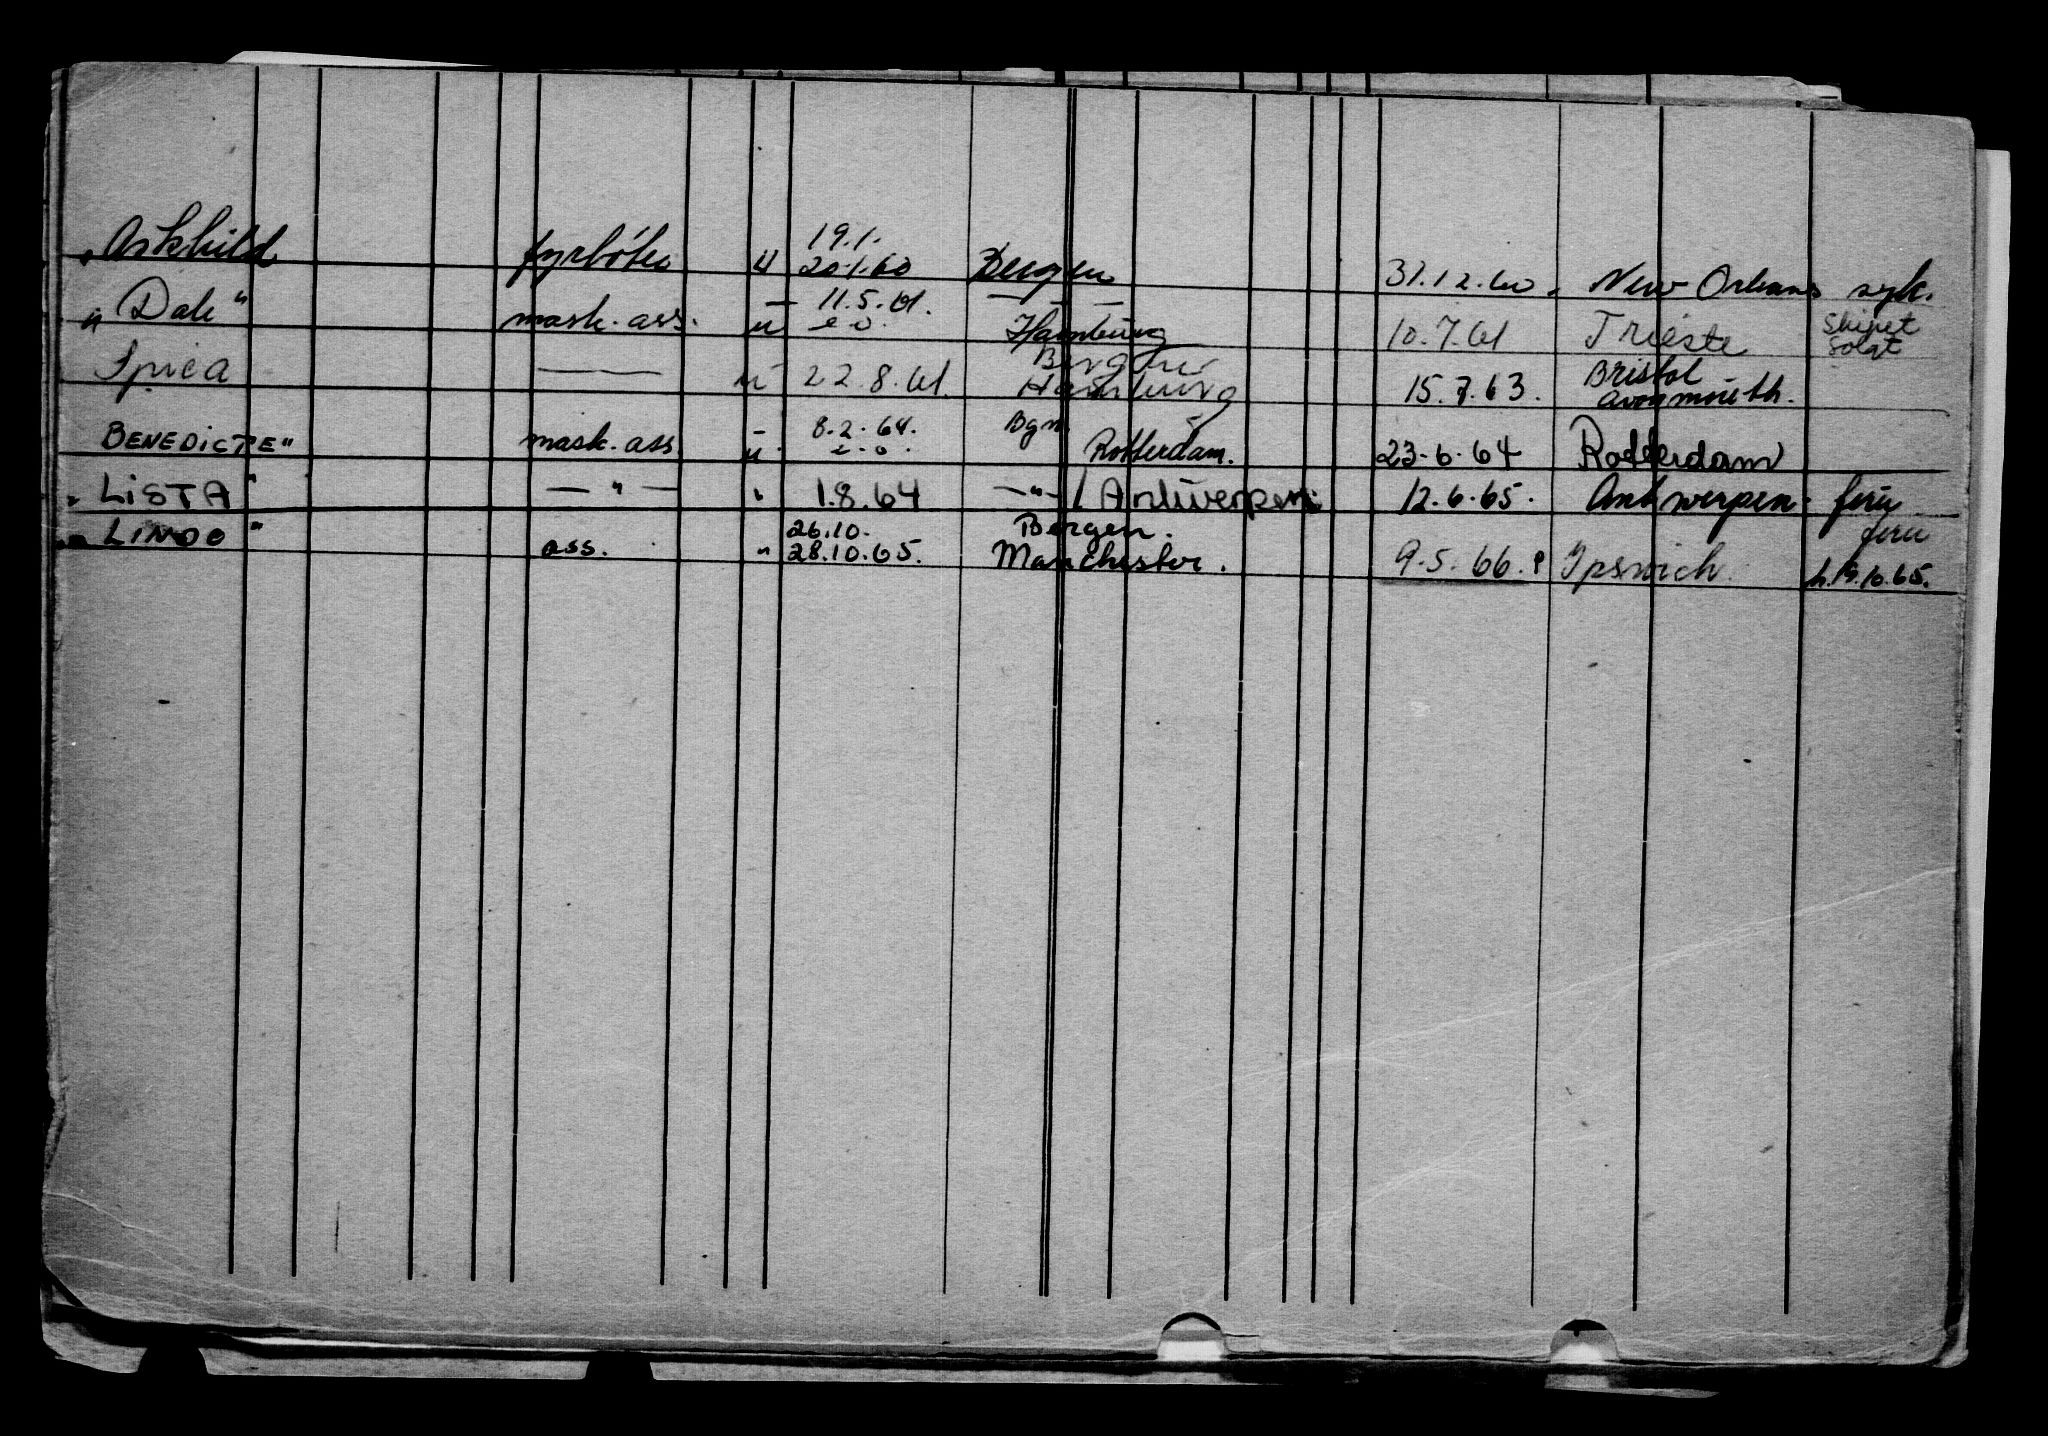 19.1.
" Askhild fyrbøter u 20.1.60 Bergen 31.12.60. New Orleans syk.
— 11.5.61. — " —
" Dale " mask. ass. u e.o. Hamburg 10.7.61 Trieste Skipet solgt
Bergen Bristol
Spica ——— u 22.8.61. Hamburg 15.7.63. Avonmouth.
— 8.2.64. Bgn.
BENEDICTE " mask. ass u e.o. Rotterdam. 23.6.64 Rotterdam
" LISTA " — " — " 1.8.64 — " — / Antwerpen. 12.6.65. Antwerpen. ferie
26.10. Bergen. ferie
" LINDO " ass. " 28.10.65. Manchester. 9.5.66. Ipswich